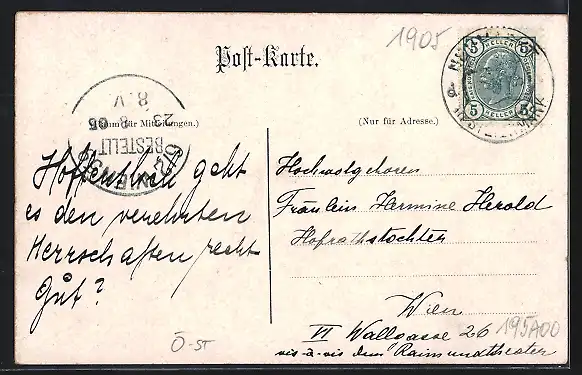 1905
Post-Karte.
8. V
23 8 05
BESTELLT
(Raum für Mitteilungen.)
(Nur für Adresse.)
5 5
HELLER
5 5
Hoffentlich geht
es den verehrten
Herrschaften recht
Gut?
Hochwolgeboren
Fräulein Hermine Herold
Hofrathstochter
Wien
VI Wallgasse 26
vis-à-vis dem Raimundtheater
195A00
Ö-ST